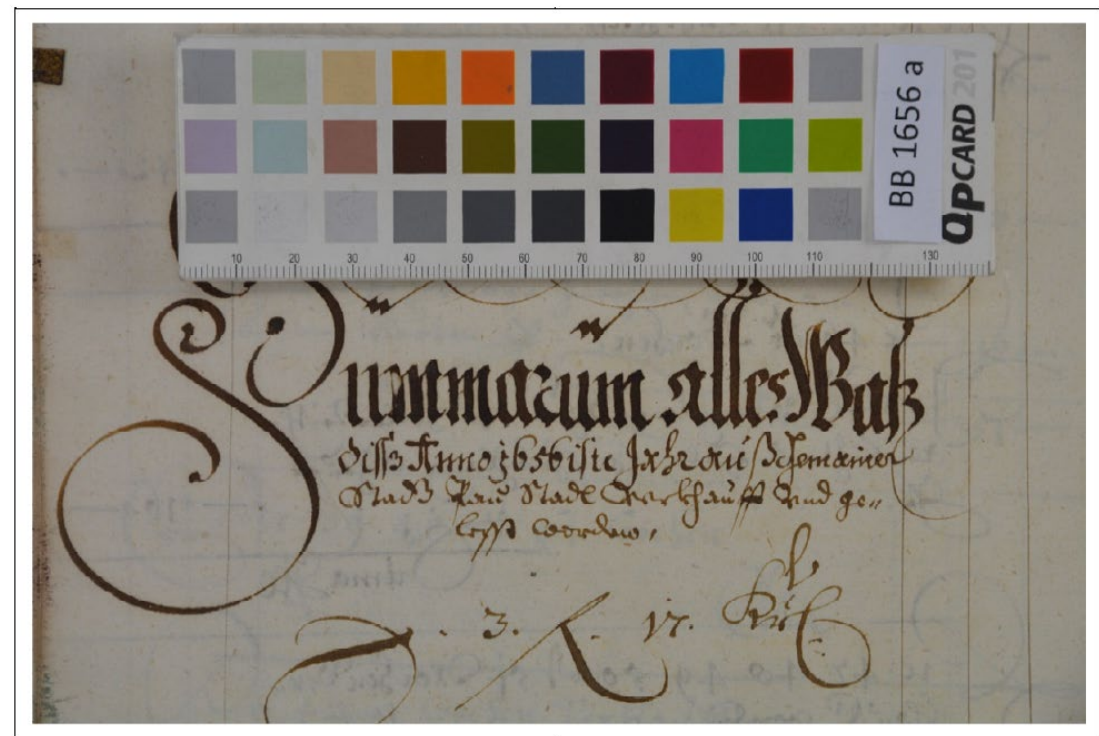 BB 1656 a
QPCARD 201
10 20 30 40 50 60 70 80 90 100 110 130
Summarum alles Waß
diss Anno 1656iste Jahr auß Gemainer
Stadt Paw Stadl Verkhaufft vnd ge-
lesst worden,
3. 17.